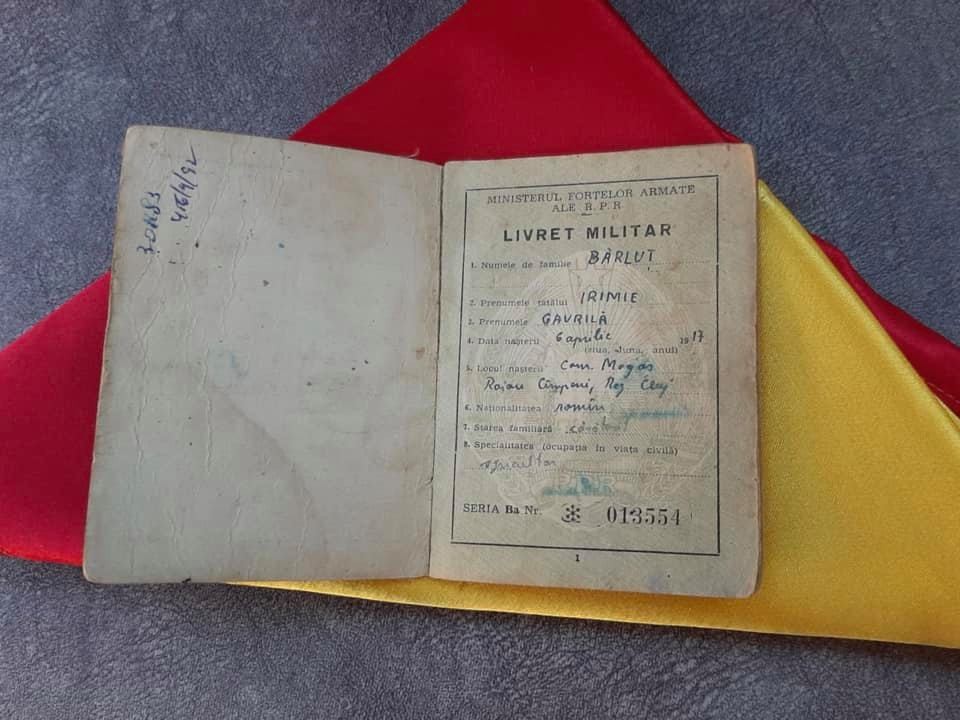 416/9/92
MINISTERUL FORȚELOR ARMATE
ALE R.P.R
LIVRET MILITAR
1. Numele de familie BÂRLUȚ
2. Prenumele tatălui IRIMIE
3. Prenumele GAVRILĂ
4. Data nașterii 6 aprilie 1917
(ziua, luna, anul)
5. Locul nașterii Com. Mogoș
Raion Cîmpeni, Reg Cluj
6. Naționalitatea romîn
7. Starea familiară căsătorit
8. Specialitatea (ocupația în viața civilă)
SERIA Ba Nr. 013554
1